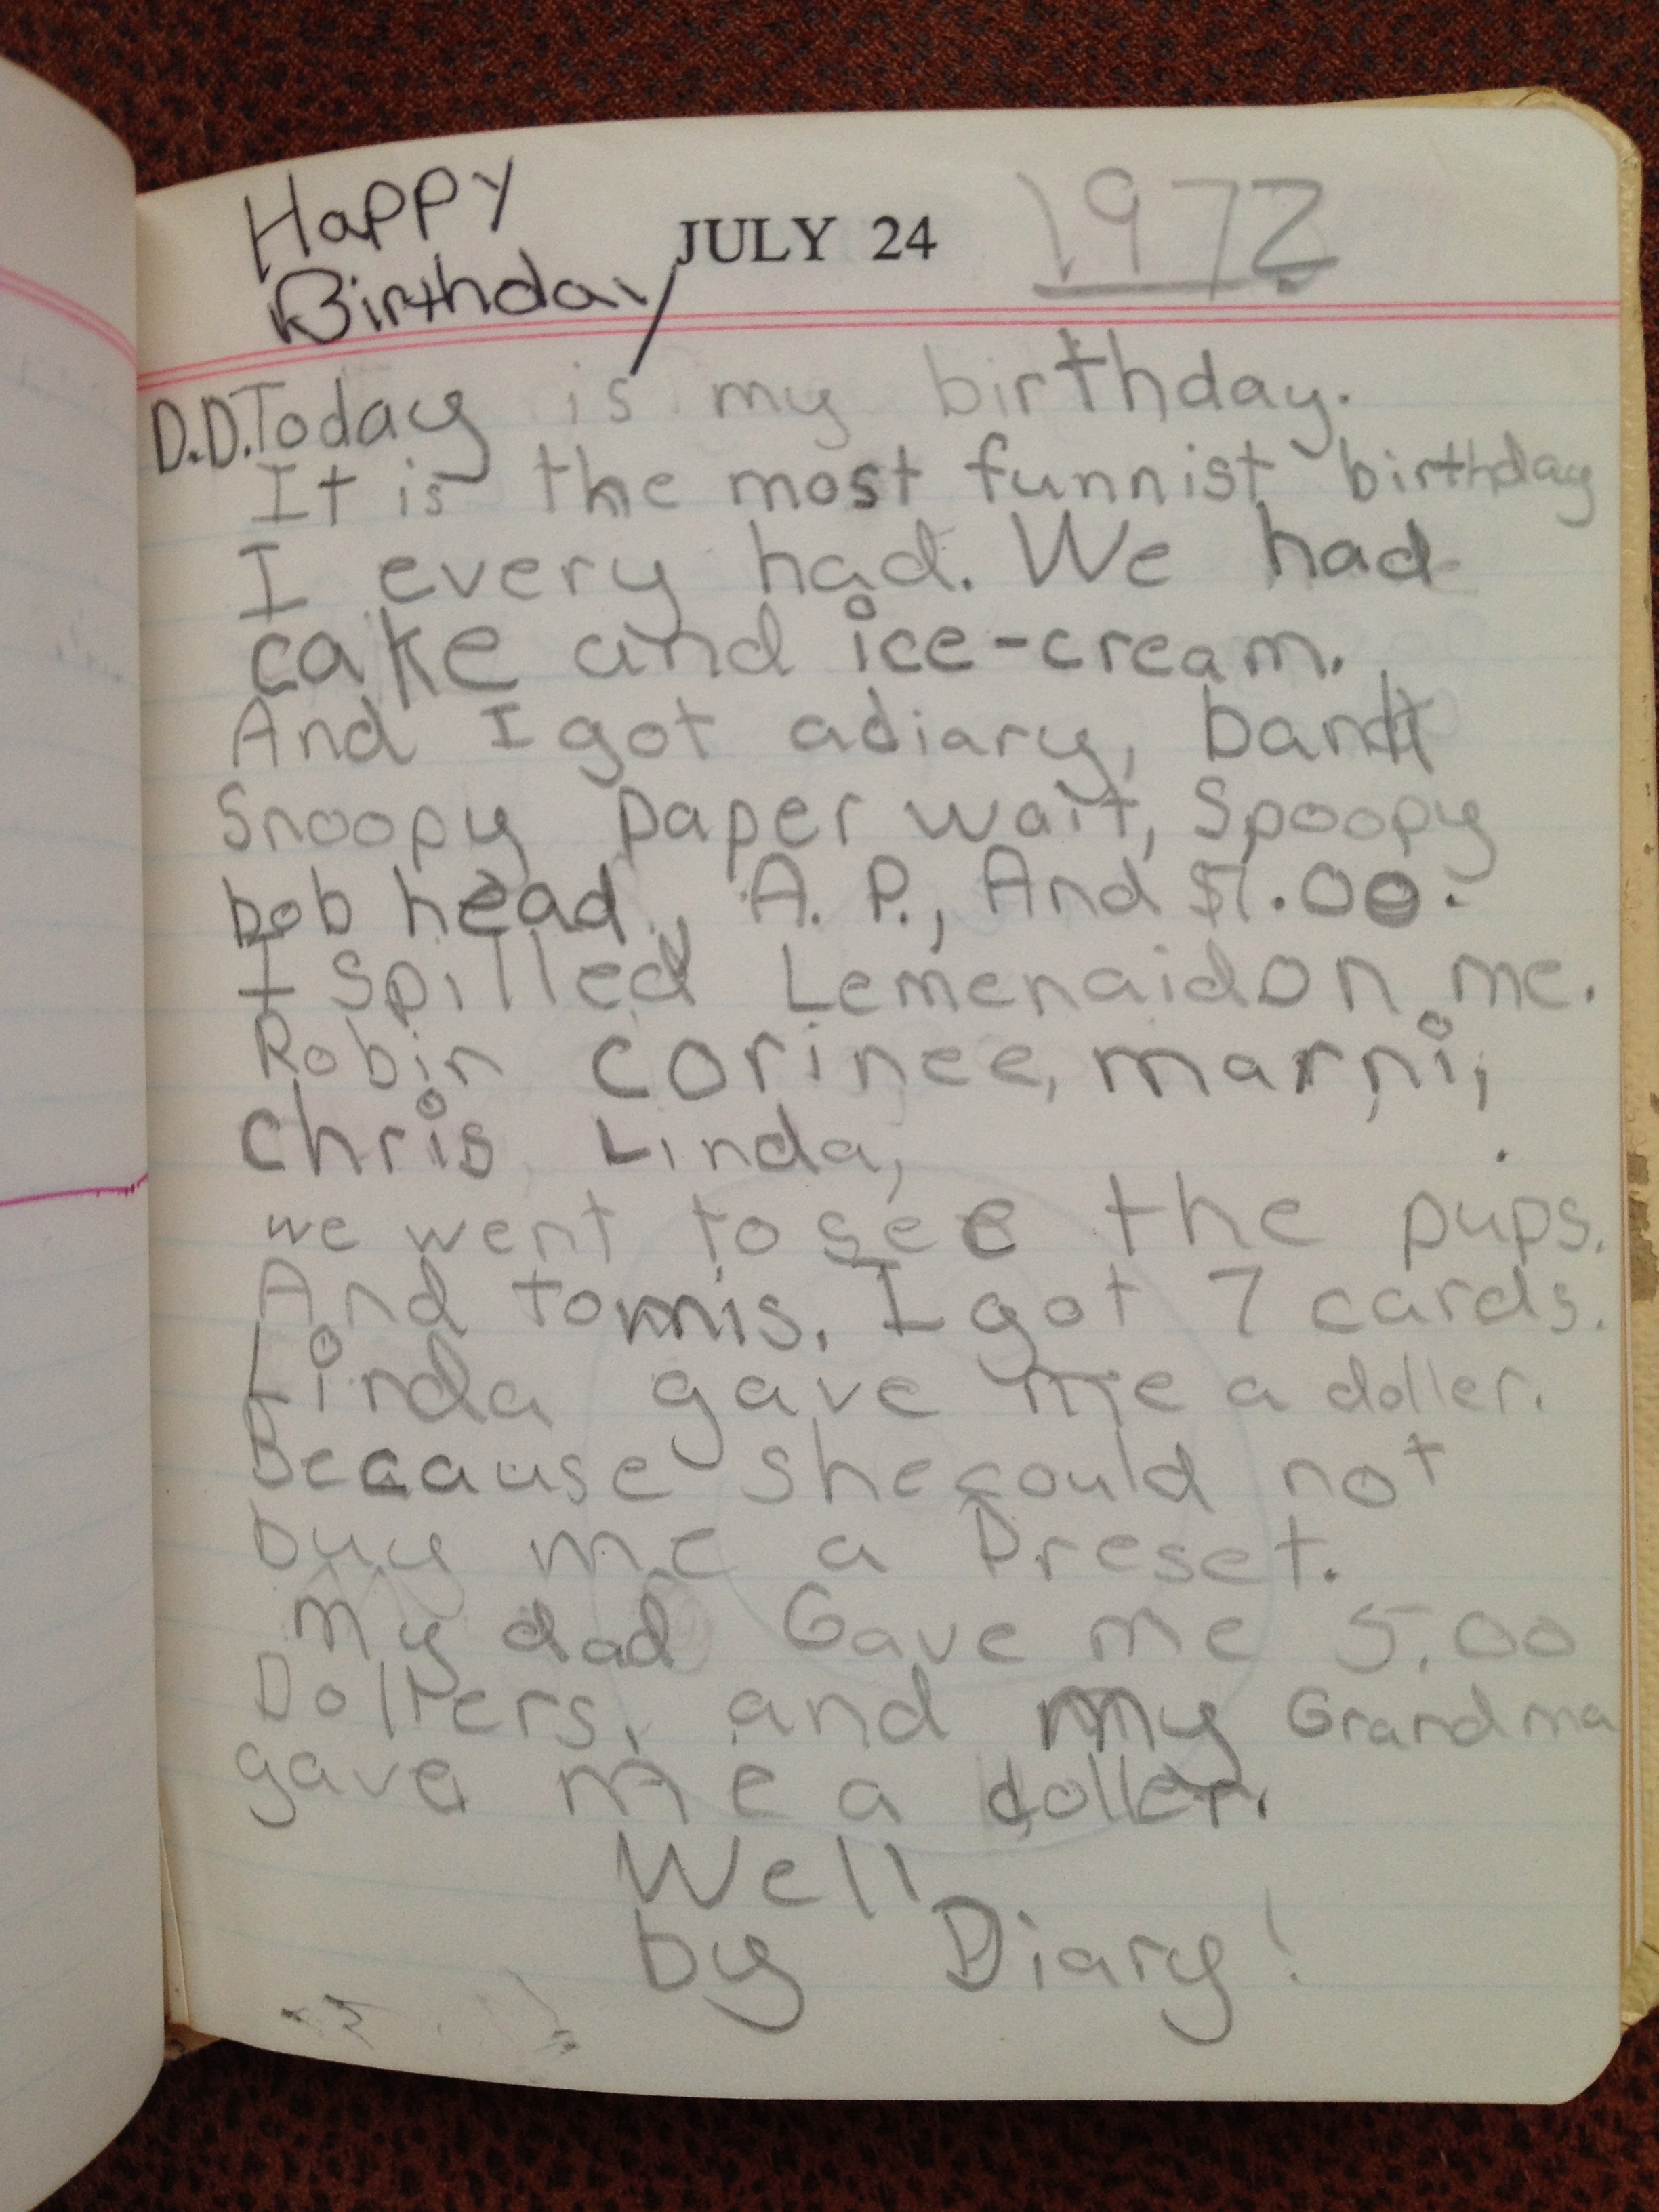 Happy
Birthday
JULY 24
1972
D.D. Today is my birthday.
It is the most funnist birthday
I every had. We had
cake and ice-cream.
And I got adiary, bank
Snoopy paper wait, Spoopy
bob head, A. P., And $1.00.
I spilled Lemenaidon me.
Robin corinee, marni,
chris, Linda,
we went to see the pups.
And tomis. I got 7 cards.
Linda gave me a doller.
Because shecould not
buy me a Preset.
My dad Gave me 5.00
Dollers, and my Grandma
gave me a doller.
Well
by Diary!